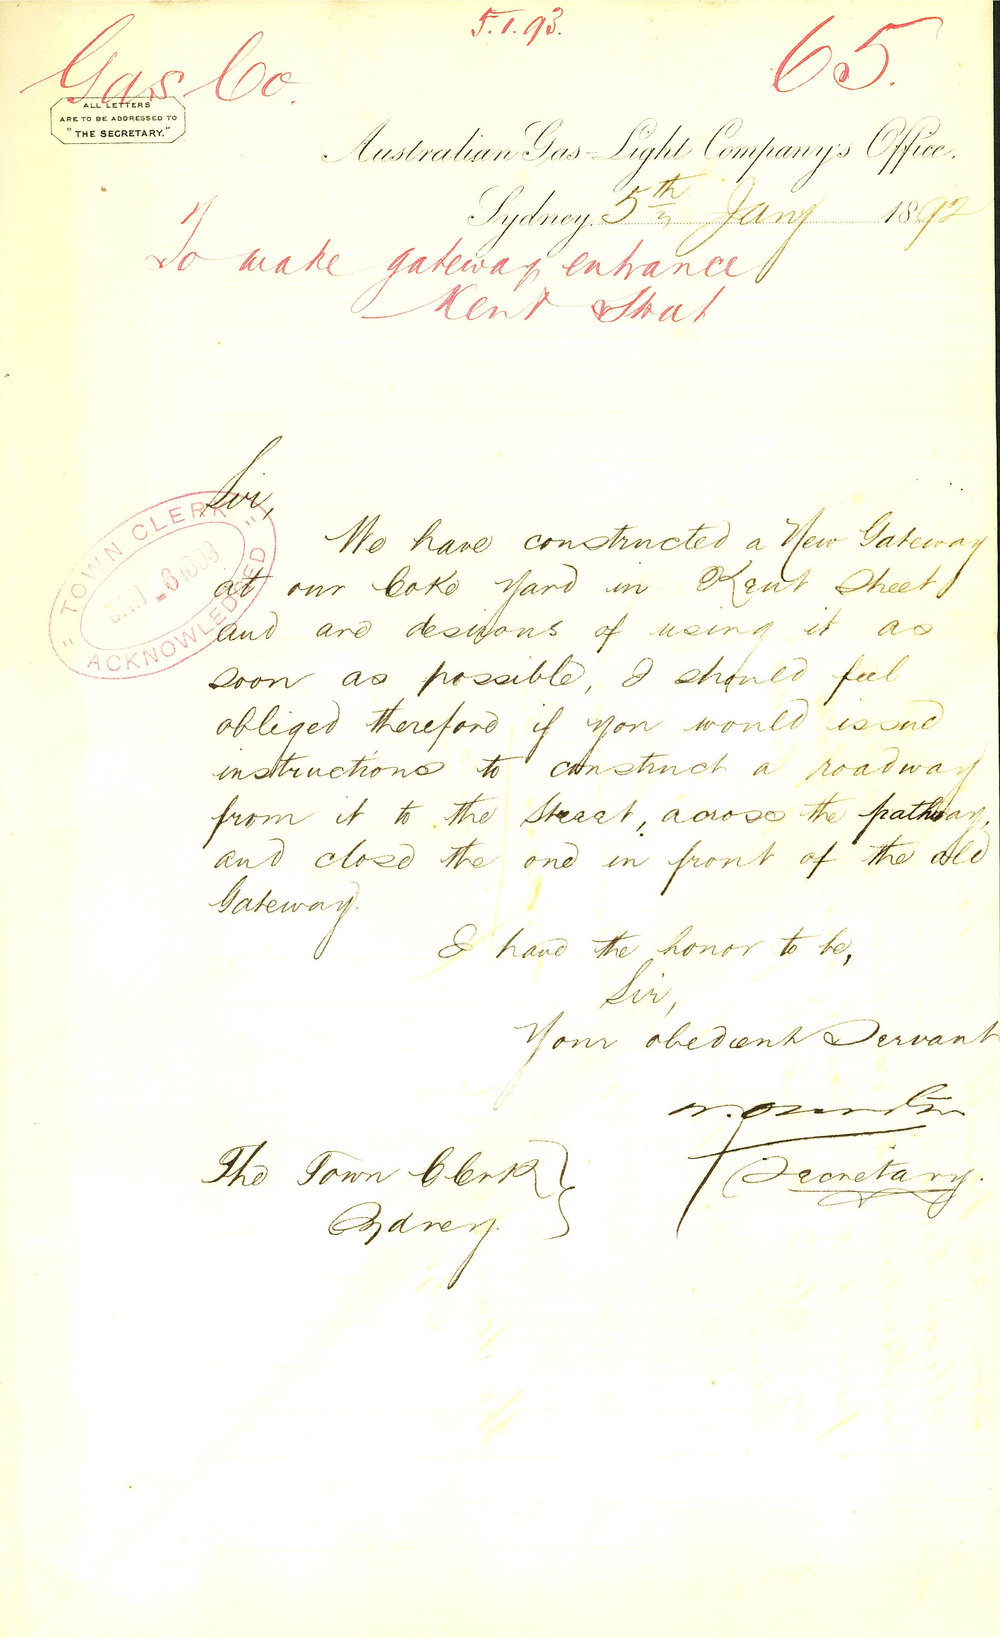 5.1.93.
Gas Co.
65.
ALL LETTERS
ARE TO BE ADDRESSED TO
"THE SECRETARY."
Australian Gas-Light Company's Office.
Sydney. 5th Jany 1892
To make gateway entrance
Kent Street
Sir,
We have constructed a New Gateway
at our Coke Yard in Kent Street
and are desirous of using it as
soon as possible, I should feel
obliged therefore if you would issue
instructions to construct a roadway
from it to the Street, across the pathway,
and close the one in front of the old
Gateway.
I have the honor to be,
Sir,
Your obedient Servant
Secretary.
The Town Clerk
Sydney.
"TOWN CLERK"
JAN -6 1893
ACKNOWLEDGED